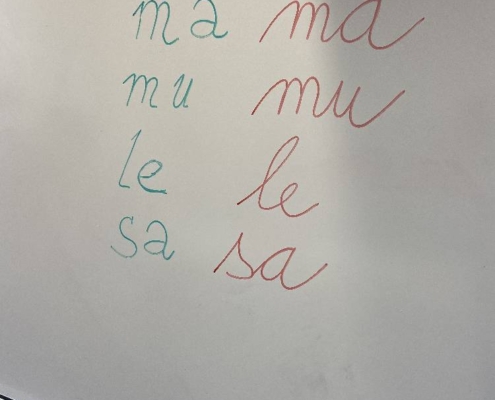 ma ma
mu mu
le le
sa sa